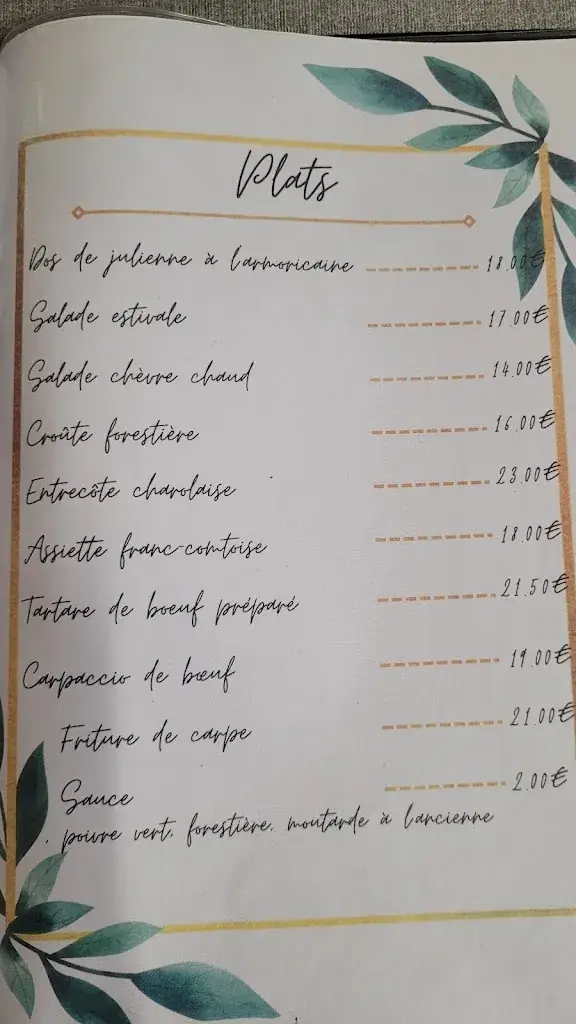 Plats
Dos de julienne à l'armoricaine 18.00€
Salade estivale 17.00€
Salade chèvre chaud 14.00€
Croûte forestière 16.00€
Entrecôte charolaise 23.00€
Assiette franc-comtoise 18.00€
Tartare de boeuf préparé 21.50€
Carpaccio de bœuf 19.00€
Friture de carpe 21.00€
Sauce 2.00€
. poivre vert, forestière, moutarde à l'ancienne